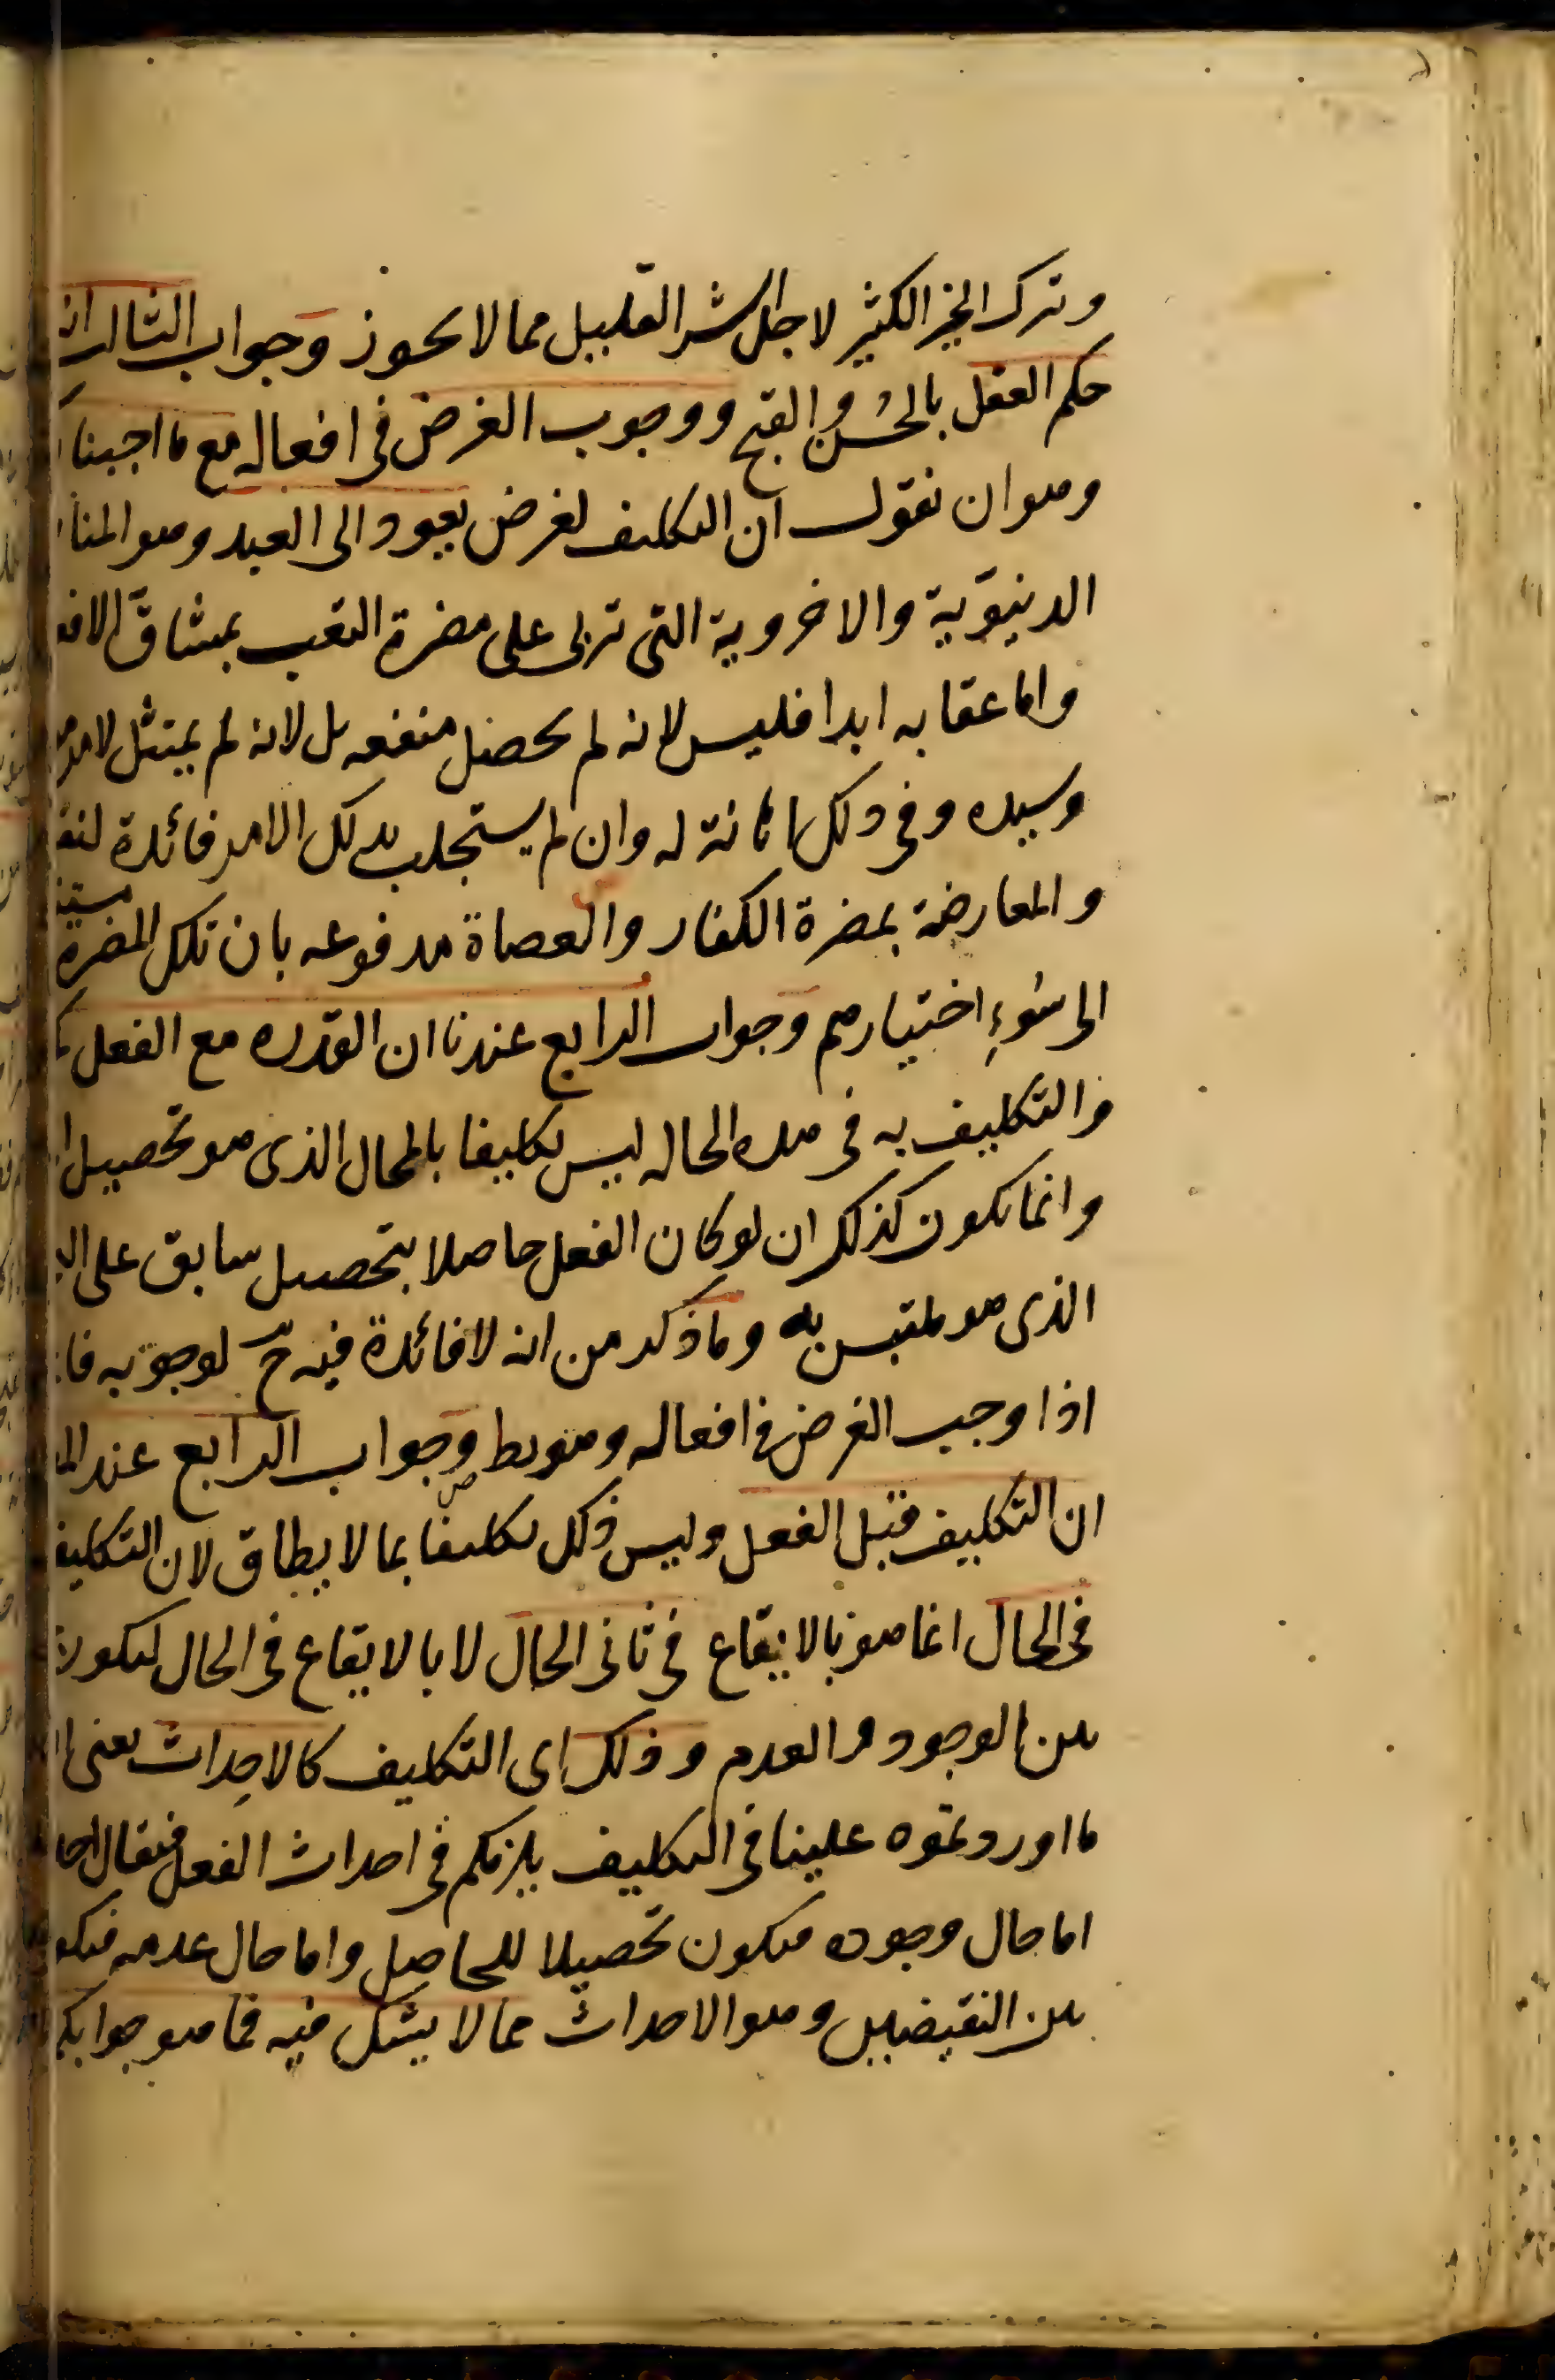 وترك الخير الكثير لاجل الشر القليل مما لا يجوز وجواب الثالث ان
حكم العقل بالحسن والقبح ووجوب الغرض في افعاله مع ما اجبنا
وهو ان نقول ان التكليف لغرض يعود الى العبد وهو
الدنيوية والاخروية التي تربى على مضرة التعب بمشاق
واما عقابه ابدا فليس لانه لم يحصل منفعه بل لانه لم يمتثل لامر
وسيده وفي ذلك اهانة له وان لم يستجلب بذلك الامر فائدة
والمعارضة بمضرة الكفار والعصاة مدفوعه بان تلك المضرة
الى سُوءِ اختيارهم وجواب الرابع عندنا ان القدره مع الفعل
والتكليف به في هذه الحاله ليس تكليفا بالمحال الذى هو تحصيل
وانما يكون كذلك ان لو كان الفعل حاصلا بتحصيل سابق على
الذى هو ملتبس به وما ذكر من انه لا فائدة فيه ح لوجوبه
اذا وجب الغرض في افعاله وهو بط وجواب الرابع عند
ان التكليف قبل الفعل وليس ذلك تكليفا بما لا يطاق لان التكليف
في الحال انما هو بالايقاع في ثاني الحال لا بالايقاع في الحال ليكون
بين الوجود والعدم وذلك اى التكليف كالاحداث يعنى
ما اوردتموه علينا في التكليف يلزمكم في احداث الفعل فيقال
اما حال وجوده فيكون تحصيلا للحاصل واما حال عدمه
بين النقيضين وهو الاحداث مما لا يشك فيه فما هو جوابكم